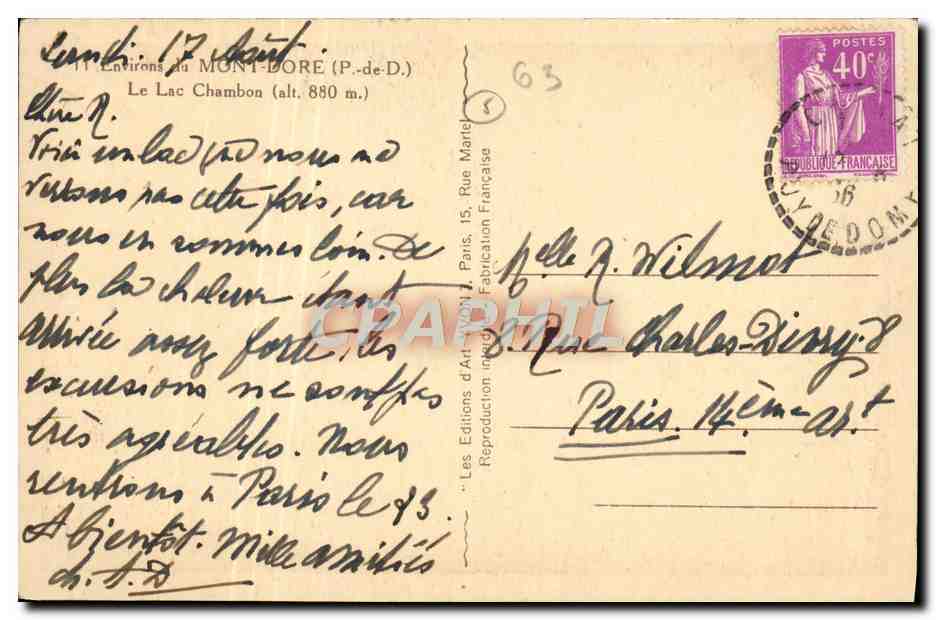 Lundi. 17 Août.
11 Environs du MONT-DORE (P.-de-D.)
Le Lac Chambon (alt. 880 m.)
Chère R.
Voici un lac que nous ne
verrons pas cette fois, car
nous en sommes loin. De
plus la chaleur étant
arrivée assez forte, les
excursions ne sont pas
très agréables. Nous
rentrons à Paris le 23.
A bientôt. Mille amitiés
"Les Editions d'Art YVON". Paris, 15, Rue Martel
Reproduction interdite Fabrication Française
63
5
POSTES
40c
REPUBLIQUE FRANÇAISE
36
PUY DE DOME
Melle R. Wilmot
8. Rue Charles-Divry. 8
Paris. 14.ème art
CPAPHIL